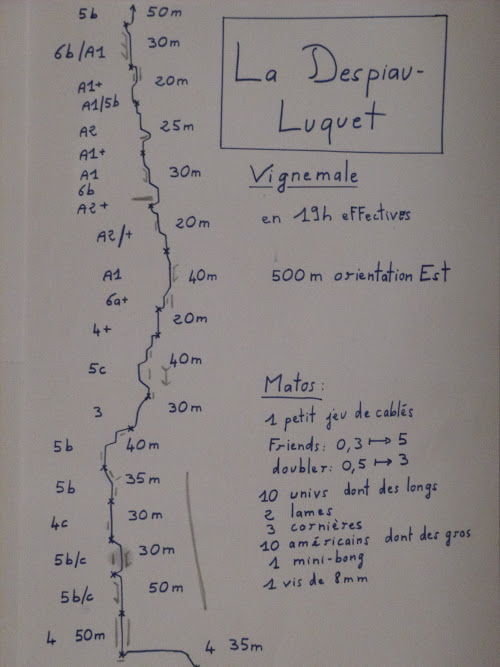 La Despiau-
Luquet
Vignemale
en 19h effectives
500m orientation Est
5b 50m
6b/A1 30m
A1+ 20m
A1/5b
A2 25m
A1+
A1 30m
6b
A2+
A2/+ 20m
A1 40m
6a+
4+ 20m
5c 40m
3 30m
5b 40m
5b 35m
4c 30m
5b/c 30m
5b/c 50m
4 50m
4 35m
Matos:
1 petit jeu de cablés
Friends: 0,3 ↦ 5
doubler: 0,5 ↦ 3
10 univs dont des longs
2 lames
3 cornières
10 américains dont des gros
1 mini-bong
1 vis de 8mm